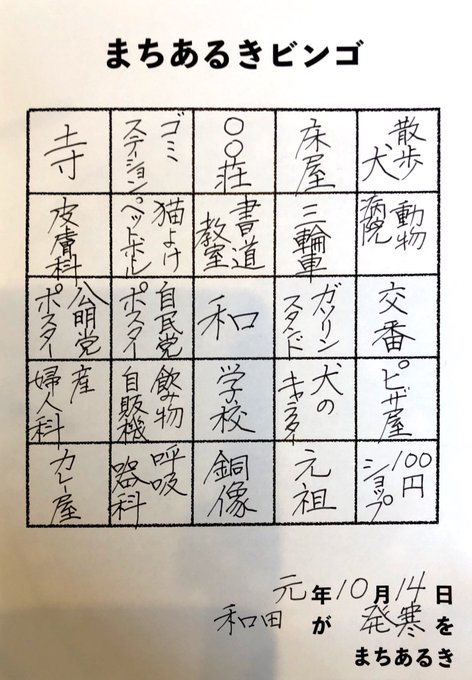 まちあるきビンゴ
寺
ゴミ
ステイション
〇〇荘
床屋
散歩
犬
皮膚科
猫よけ
ペットボトル
書道
教室
三輪車
動物
病院
公明党
ポスター
自民党
ポスター
和
ガソリン
スタンド
交番
産
婦人科
飲み物
自販機
学校
犬の
キャラクター
ピザ屋
カレー屋
呼吸
器科
銅像
元祖
100円
ショップ
元年10月14日
和田が発寒を
まちあるき